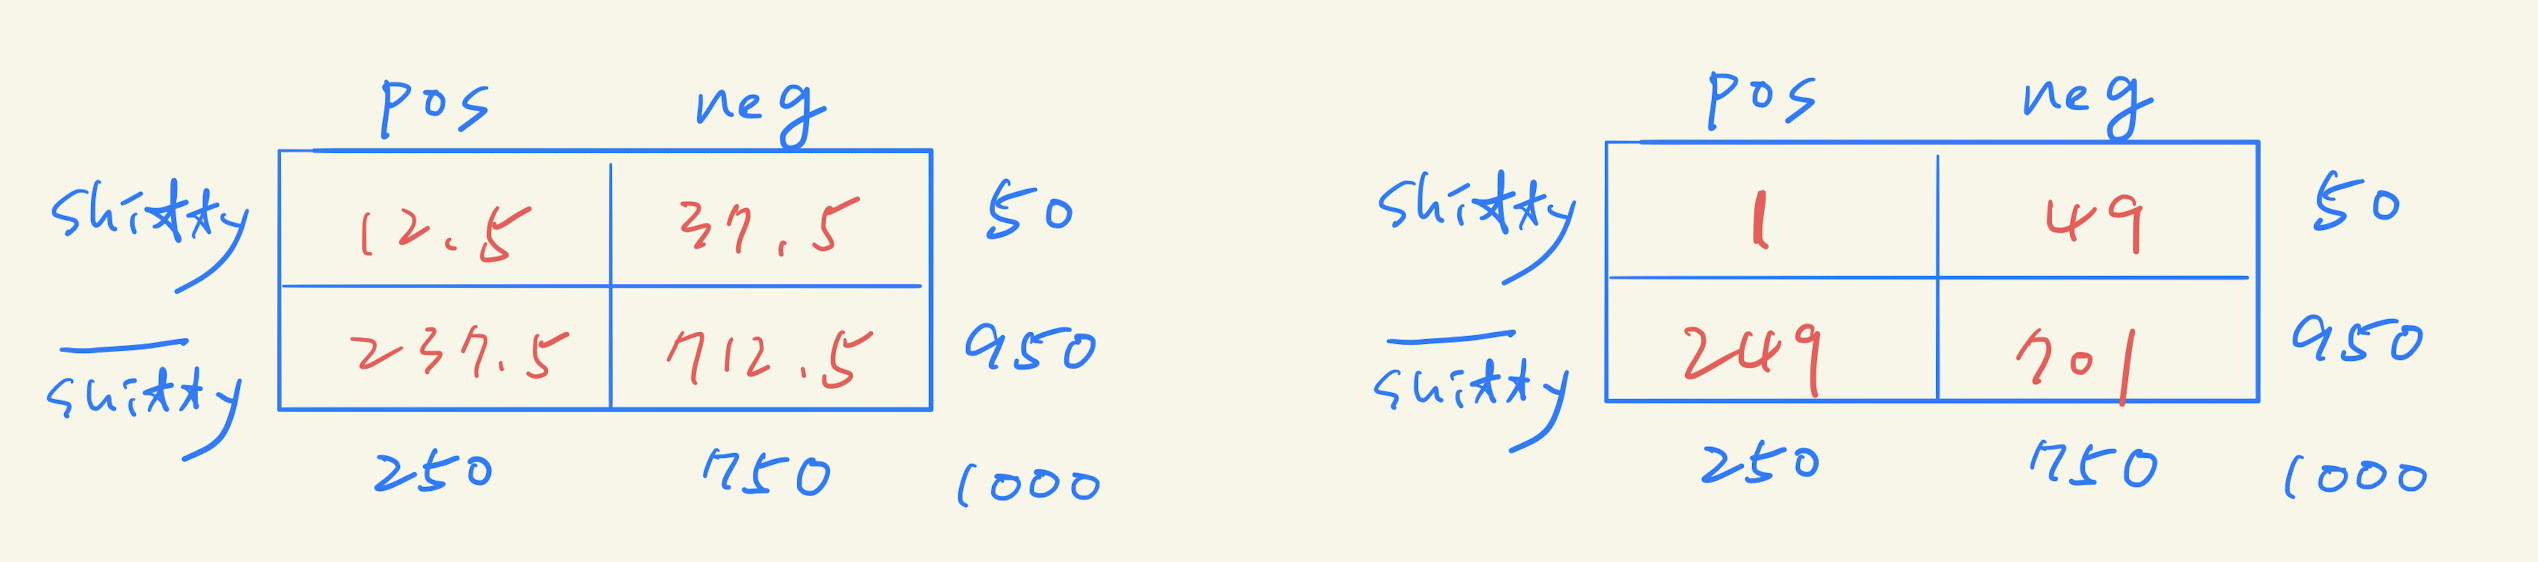 pos neg
shitty 12.5 37.5 50
shitty 237.5 712.5 950
250 750 1000
pos neg
shitty 1 49 50
shitty 249 701 950
250 750 1000